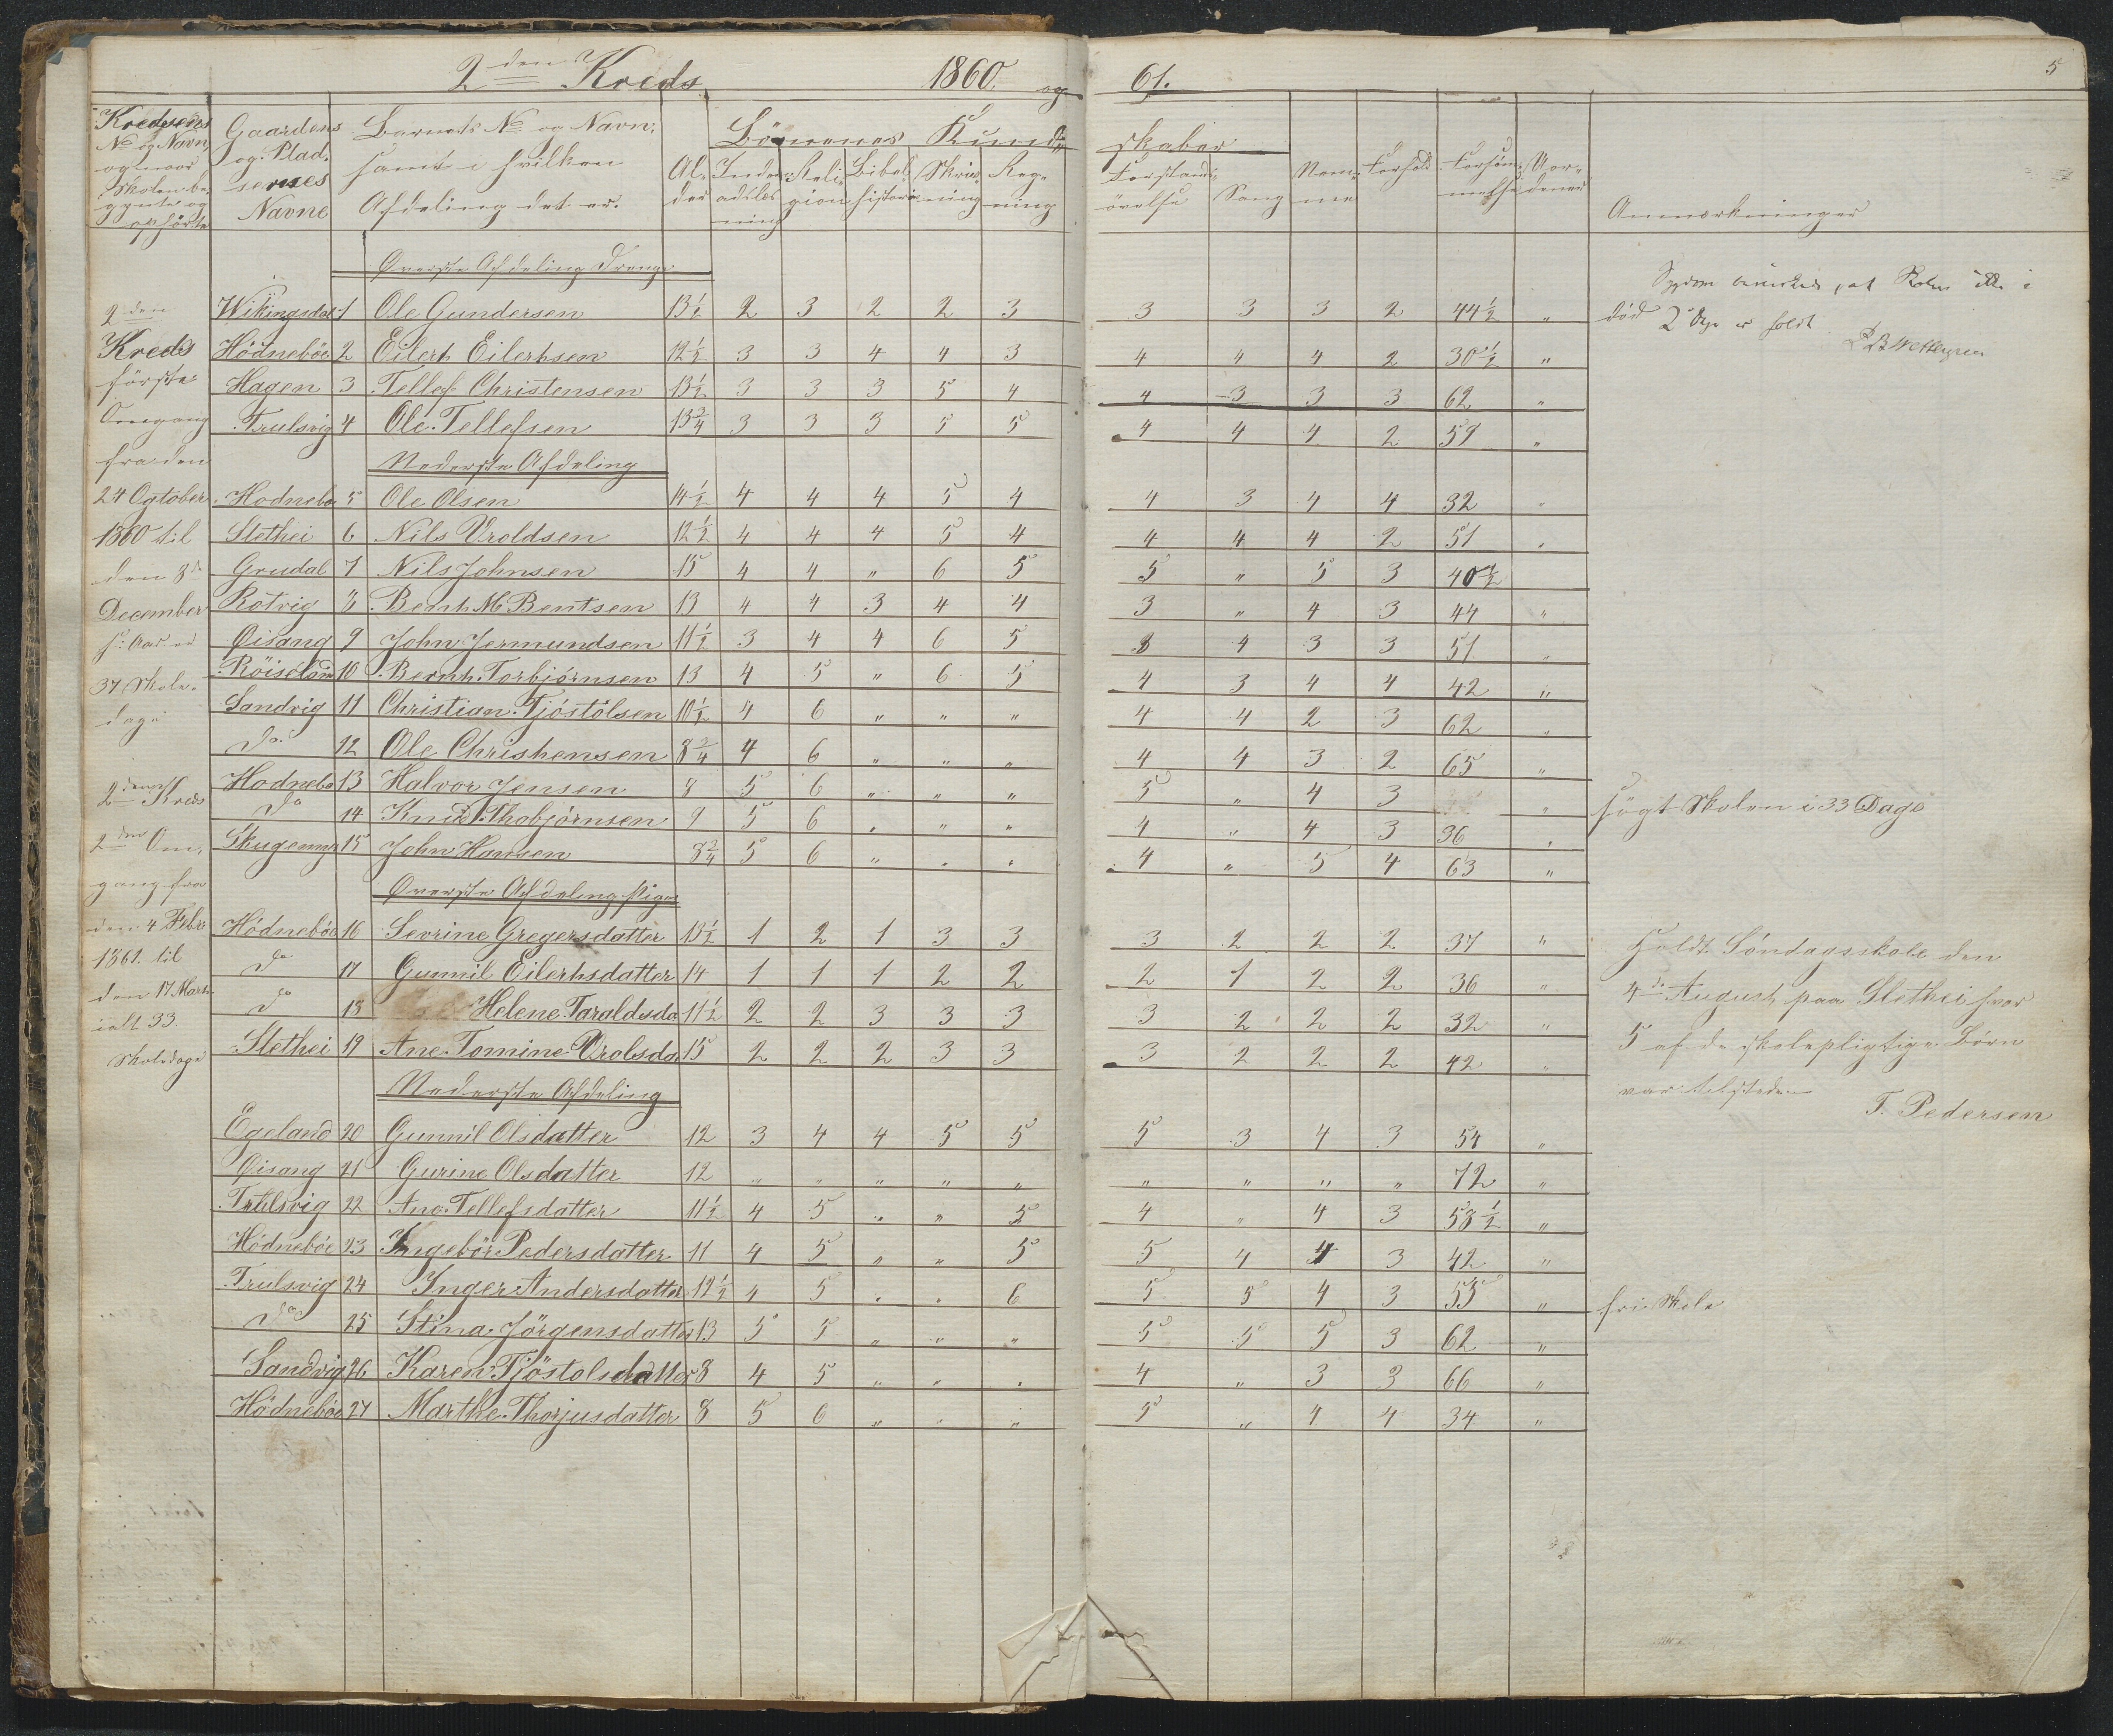 2den Kreds 1860. og 61. 5
Kredsens No og Navn og naar Skolen begynte og ophörte
Gaardens og Pladsernes Navne
Barnets No og Navn, samt i hvilken Afdeling det er.
Alder
Börnenes Kundskaber
Indenadslesning Religion Bibelhistorie Skrivning Regning Forstandsövelse Sang Nemme Forhold Forsömmelse
Anmerkninger
Øverste Afdeling Drenge
Wikingsdal 1 Ole Gundersen 13½ 2 3 2 2 3 3 3 3 2 44½ "
Hödneböe 2 Eilert Eilertsen 12½ 3 3 4 4 3 4 4 4 2 30½ "
Hagen 3 Tellef Christensen 13½ 3 3 3 5 4 4 3 3 3 62 "
Trulsvig 4 Ole Tellefsen 13¾ 3 3 3 5 5 4 4 4 2 57 "
Nederste Afdeling
Hodnebö 5 Ole Olsen 14½ 4 4 4 5 4 4 3 4 4 32 "
Slethei 6 Nils Vroldsen 12½ 4 4 4 5 4 4 4 4 2 51 "
Grudal 7 Nils Johnsen 15 4 4 " 6 5 5 " 5 3 40½
Rotvig 8 Bernt M Bentsen 13 4 4 3 4 4 3 " 4 3 44 "
Øisang 9 John Jermundsen 11½ 3 4 4 6 5 3 4 3 3 51 "
10 Bernt Torbjörnsen 13 4 5 " 6 5 4 3 4 4 42 "
Sandvig 11 Christian Tjöstolsen 10½ 4 6 " " " 4 4 2 3 62 "
Do 12 Ole Christensen 8¾ 4 6 " " " 4 4 3 2 65 "
Hodnebö 13 Halvor Jensen 8 5 6 " " " 5 " 4 3 "
Do 14 Knud Thobjörnsen 9 5 6 " " " 4 " 4 3 36 "
15 John Hansen 8¾ 5 6 " " " 4 " 5 4 63 "
Øverste Afdeling Piger
Hödneböe 16 Sevrine Gregersdatter 13½ 1 2 1 3 3 3 2 2 2 37 "
Do 17 Gunnil Eilertsdatter 14 1 1 1 2 2 2 1 2 2 36 "
Do 18 Helene Taraldsda 11½ 2 2 3 3 3 3 2 2 2 32 "
Slethei 19 Ane Tomine Vrolsda 15 2 2 2 3 3 3 2 2 2 42 "
Nederste Afdeling
Egeland 20 Gunnil Olsdatter 12 3 4 4 5 5 5 3 4 3 54 "
Øisang 21 Gurine Olsdatter 12 " " " " " " " " " 72 "
Trulsvig 22 Ane Tellefsdatter 11½ 4 5 " " 5 4 " 4 3 58½ "
Hödneböe 23 Ingebör Pedersdatter 11 4 5 " " 5 5 4 4 3 42 "
Trulsvig 24 Inger Andersdatter 12½ 4 5 " " 6 5 5 4 3 55 "
Do 25 Stina Jörgensdatter 13 5 5 " " " 5 5 5 3 62 "
Sandvig 26 Karen Tjöstolsdatter 8 4 5 " " " 4 " 3 3 66 "
Hödneböe 27 Marthe Thorjusdatter 8 5 6 " " " 5 " 4 4 34 "
2den
Kreds
förste
Omgang
fra den
24 Ogtober
1860 til
den 8de
December
s: Aar
37 Skole-
dage
2den Kreds
2den Om-
gang fra
den 4 Febr
1861. til
den 17 Marts
ialt 33
Skoledage
Sygdom at Skolen ikke i
2 Dage er holdt
Wettergren
Sögt Skolen i 33 Dage
Holdt Söndagsskole den
4de August paa Slethei hvor
5 af de skolepligtige Börn
var tilstede
T. Pedersen
fri Skole